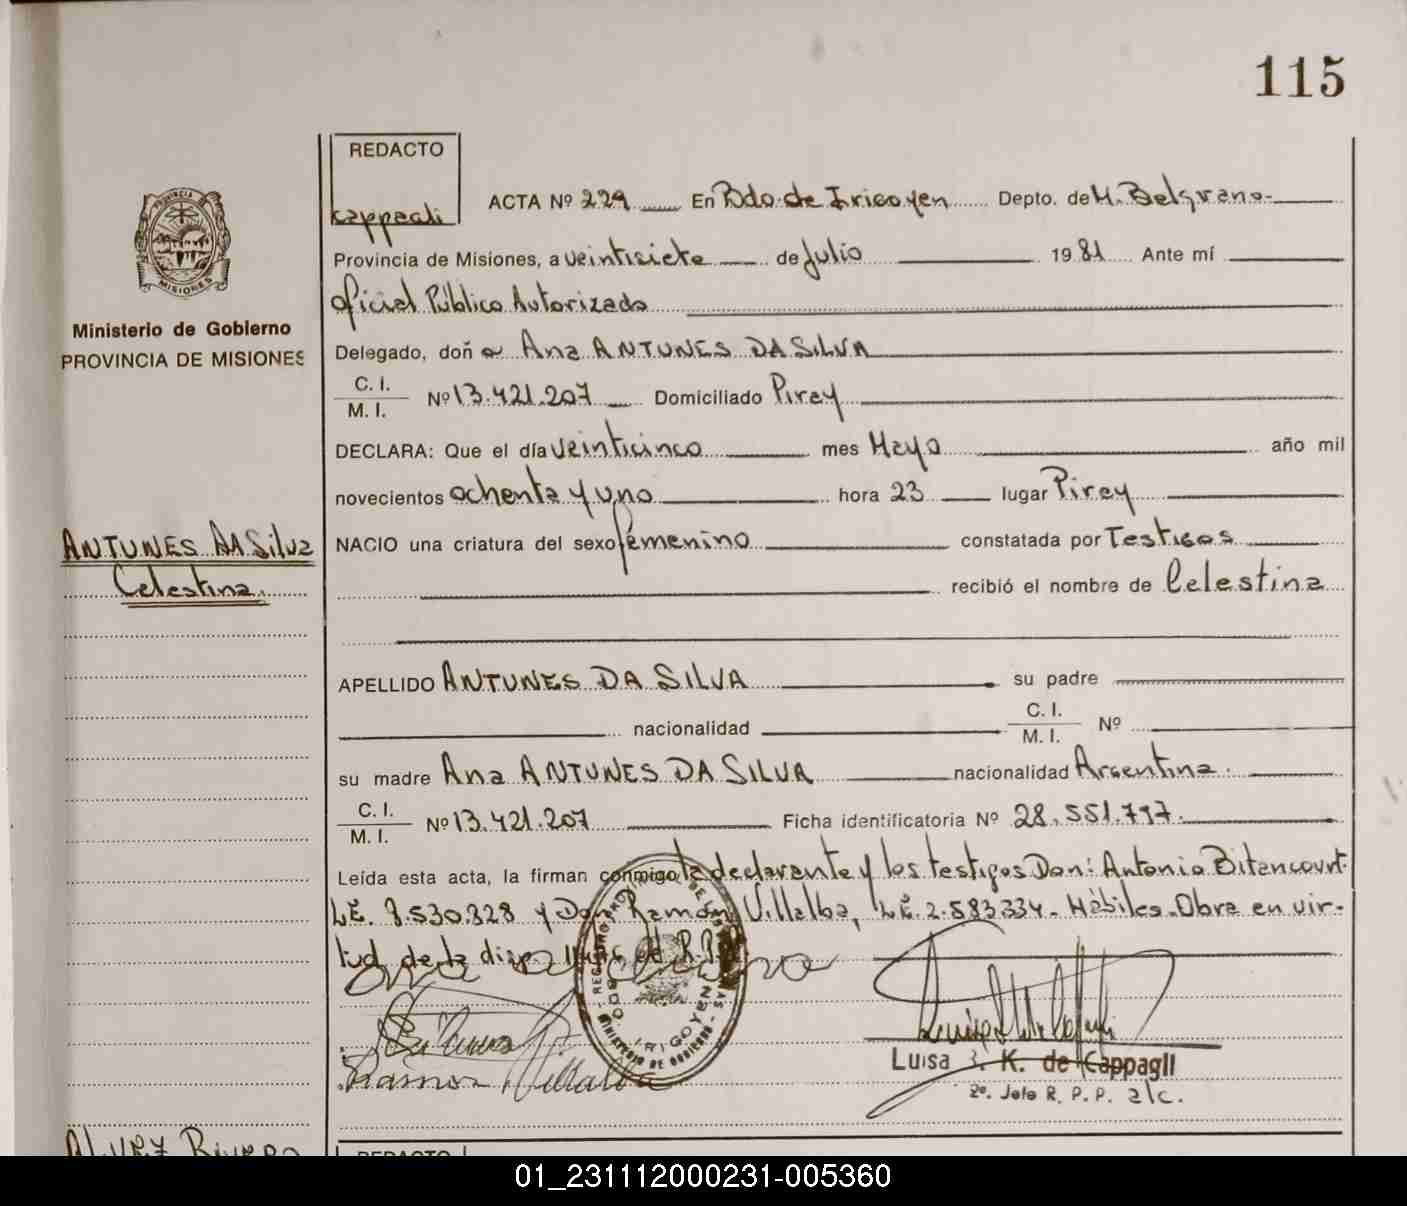 115
REDACTO
Cappagli
ACTA Nº 229 En Bdo. de Irigoyen Depto. de M. Belgrano
Provincia de Misiones, a veintisiete de Julio 1981 Ante mí
Oficial Público Autorizado
Ministerio de Gobierno
PROVINCIA DE MISIONES
Delegado, doña Ana ANTUNES DA SILVA
C. I.
M. I.
Nº 13.421.207 Domiciliado Piray
DECLARA: Que el día veinticinco mes Mayo año mil
novecientos ochenta y uno hora 23 lugar Piray
ANTUNES DA Silva
Celestina.
NACIO una criatura del sexo femenino constatada por Testigos
recibió el nombre de Celestina
APELLIDO ANTUNES DA SILVA su padre
nacionalidad C. I.
M. I. Nº
su madre Ana ANTUNES DA SILVA nacionalidad Argentina.
C. I.
M. I.
Nº 13.421.207 Ficha identificatoria Nº 28.551.797.
Leída esta acta, la firman conmigo la declarante y los testigos Don: Antonio Bitancourt
L.E. 7.530.828 y Don Ramón Villalba, L.E. 2.583.334. Hábiles. Obra en vir-
tud de la disp. del R.P.P.
Ramon Villalba
Luisa K. de Cappagli
2º. Jefe R. P. P. a/c.
ALVEZ Rivero
REDACTO
01_231112000231-005360